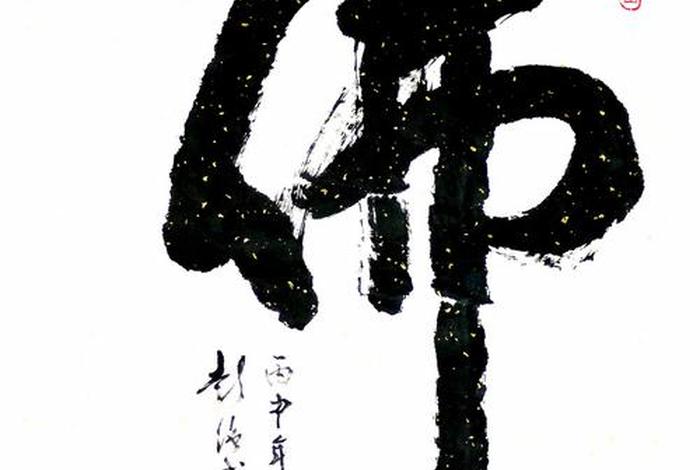 佛
丙申年
彭